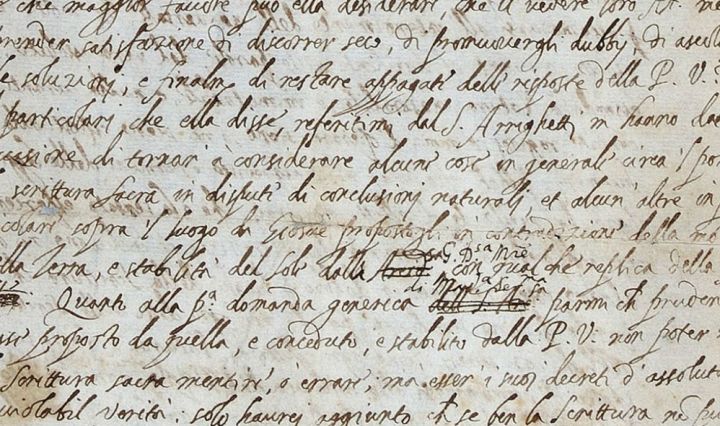 che maggior favore può ella desiderar, che il vedere loro
render satisfazione di discorrer seco, di promuovergli dubbij, di ascol
e soluzioni, e finalm. di restare appagati delle risposte della P. V.
particolari che ella disse, referitimi dal S. Arrighetti m hanno da
casione di tornar à considerare alcune cose in generale circa 'l por
scrittura sacra in dispute di conclusioni naturali, et alcun' altre in p
colare sopra 'l luogo di Giosuè propostogli in contradizione della mo
ella Terra, e stabilità del Sole dalla G. D.sa M.re con qualche replica della
Quanto alla p.a domanda generica di M.ma parmi ch prudent
se proposto da quella, e conceduto, e stabilito dalla P. V. non poter
scrittura sacra mentire, ò errare, ma esser' i suoi decreti d' assolut
violabil verità: solo haurei aggiunto ch se ben la scrittura nō può